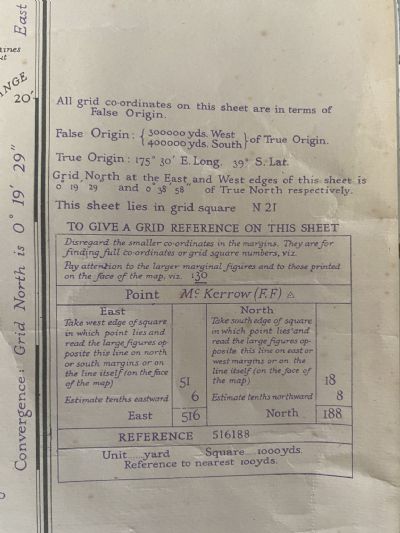 East
20'
All grid co-ordinates on this sheet are in terms of
False Origin.
False Origin: { 300000 yds. West
400000 yds. South } of True Origin.
True Origin: 175° 30' E. Long. 39° S. Lat.
Grid North at the East and West edges of this sheet is
0° 19' 29" and 0° 38' 58" of True North respectively.
This sheet lies in grid square N 21
TO GIVE A GRID REFERENCE ON THIS SHEET
Disregard the smaller co-ordinates in the margins. They are for
finding full co-ordinates or grid square numbers, viz.
Pay attention to the larger marginal figures and to those printed
on the face of the map, viz. 130
Point McKerrow (F.F) △
East
Take west edge of square
in which point lies and
read the large figures op-
posite this line on north
or south margins or on
the line itself (on the face
of the map) 51
Estimate tenths eastward 6
East 516
North
Take south edge of square
in which point lies and
read the large figures op-
posite this line on east or
west margins or on the
line itself (on the face of
the map) 18
Estimate tenths northward 8
North 188
REFERENCE 516188
Unit......yard Square....1000yds.
Reference to nearest 100yds.
Convergence: Grid North is 0° 19' 29"